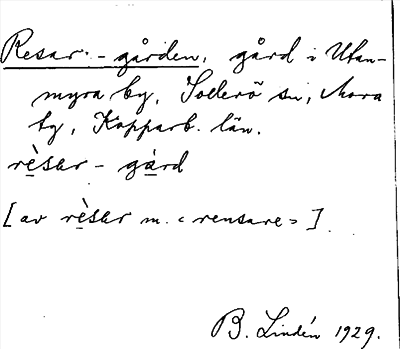 Resar-gården, gård i Utan-
myra by, Sollerö sn, Mora
tg, Kopparb. län.
rèsar - gàrd
[av rèsar m. < rensare > ]
B. Lindén 1929.